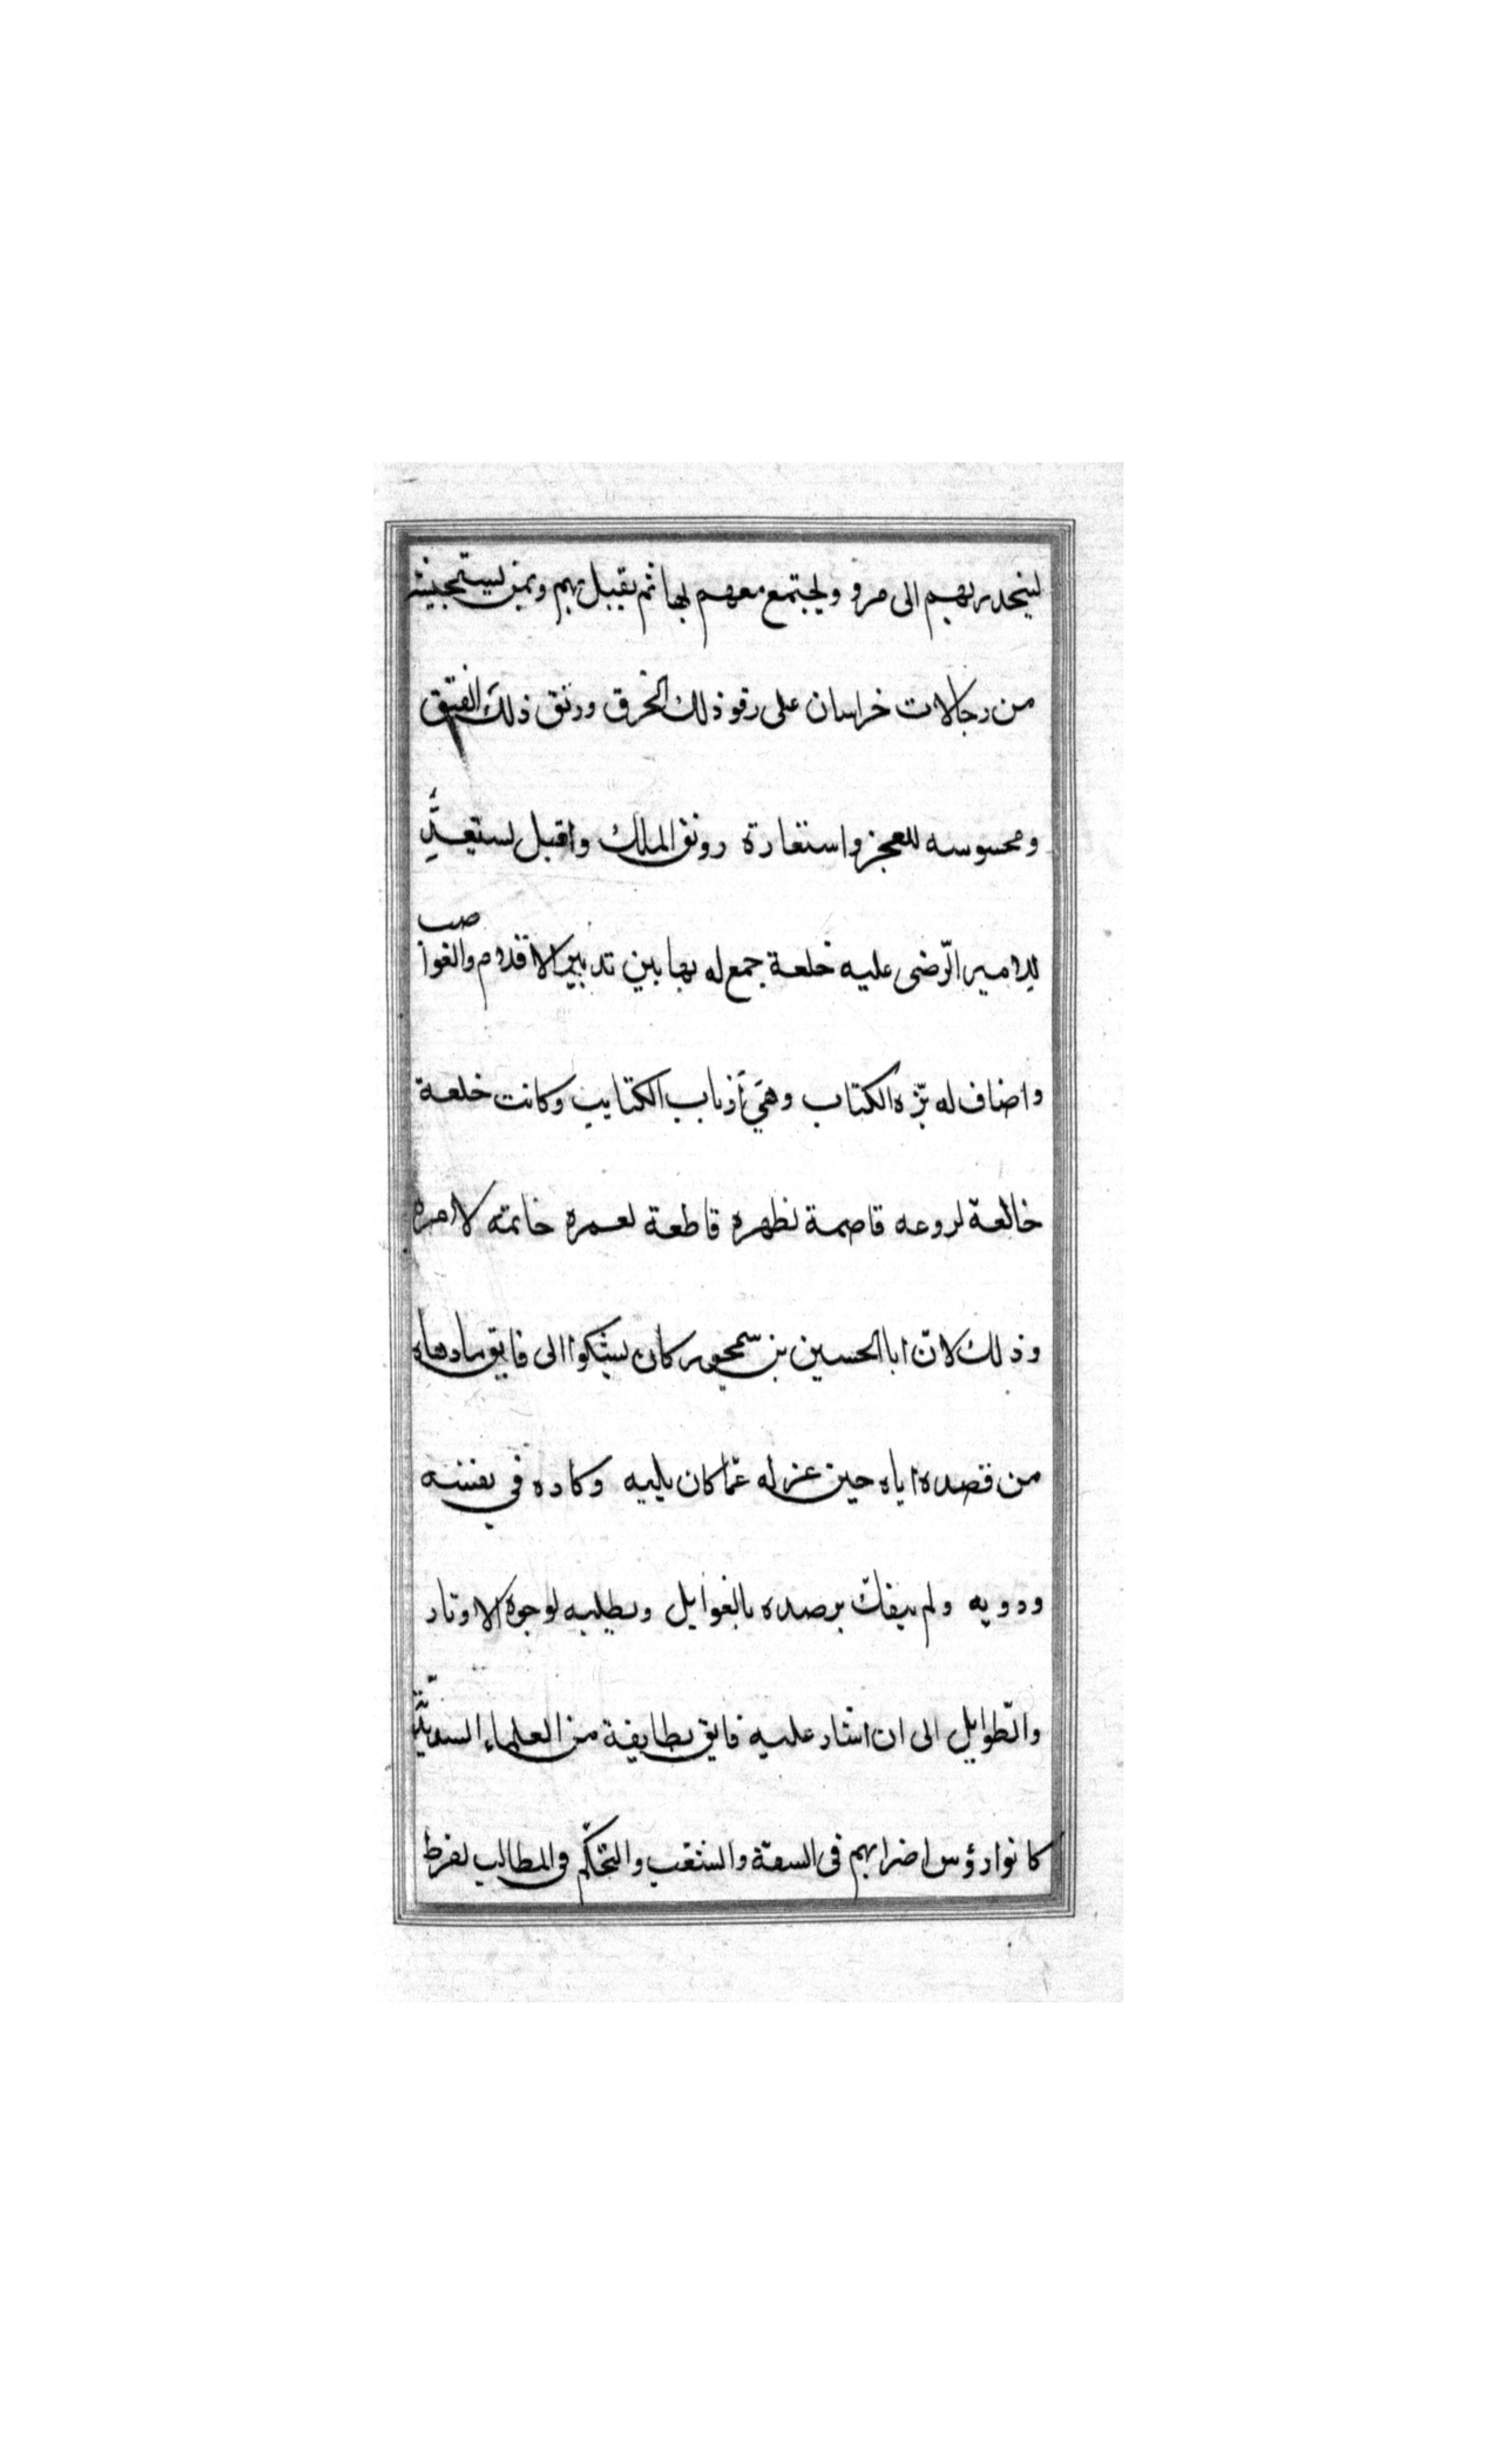 لينحدر بهم الى مرو ويجتمع معهم بها ثم يقبل بهم وبمن يستجيش
من رجالات خراسان على رفو ذلك الخرق ورتق ذلك الفتق
ومحسوسه للعجز واستعادة رونق الملك واقبل يستعيد
للامير الرّضى عليه خلعة جمع له بها بين تدبير الاقلام والقواضب
واضاف له بزّه الكتاب وهي أذناب الكتايب وكانت خلعة
خالعة لروعه قاصمة لظهره قاطعة لعمره خاتمه لامره
وذلك لانّ ابا الحسين بن سمجور كان يشكوا الى فايق مادهاه
من قصده اياه حين عزله عمّا كان يليه وكاده في نفسه
وذويه ولم ينفكّ يرصده بالغوايل ويطلبه لوجوه الاوتار
والطّوايل الى ان اشار عليه فايق بطايفة من العلماء السديّة
كانوا رؤس اضرابهم فى السعة والشغب والتحكّم فى المطالب لفرط